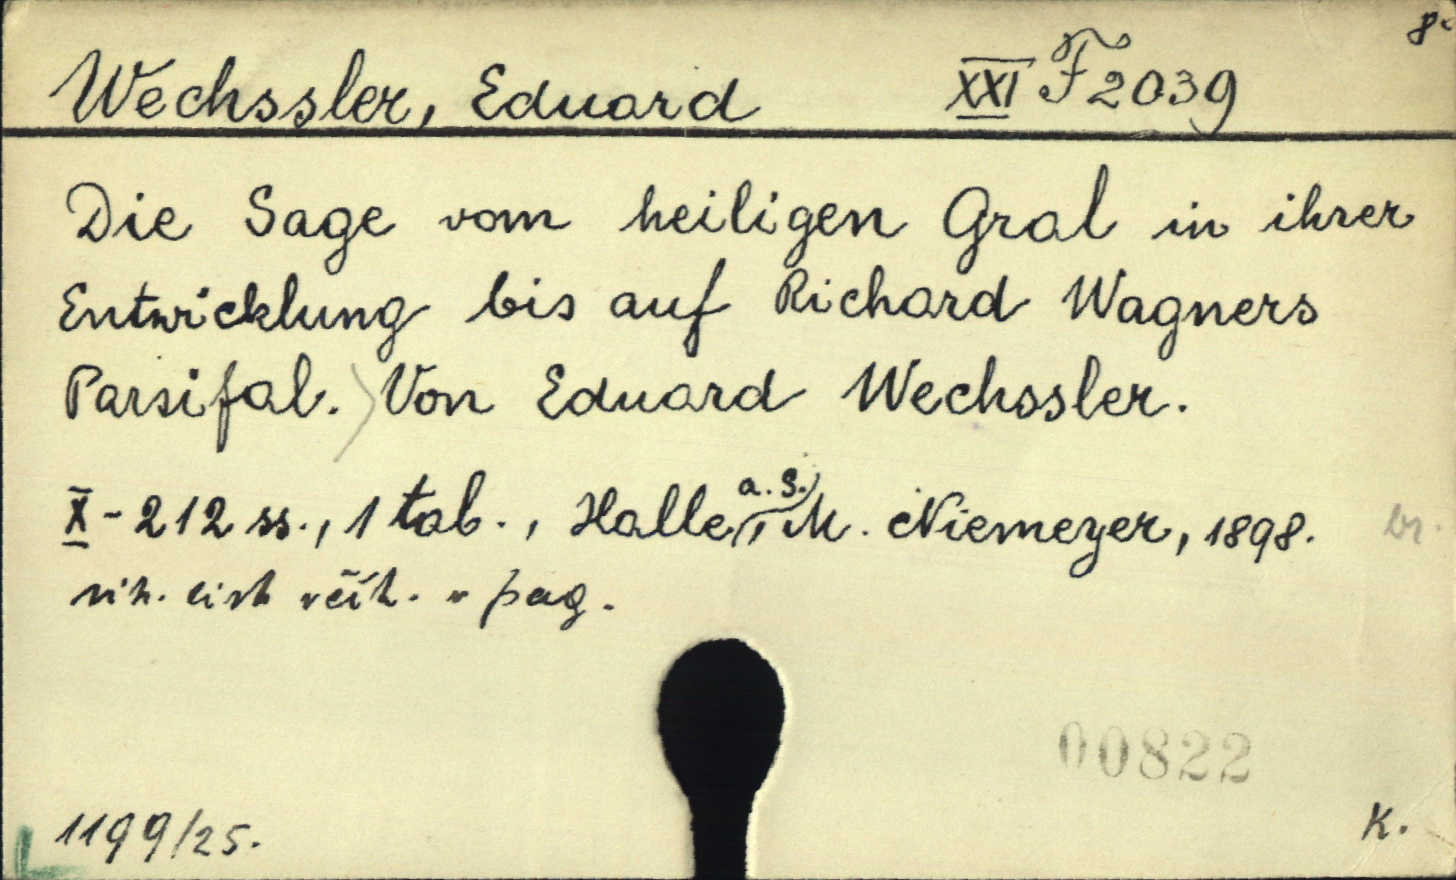 8°
Wechssler, Eduard XXI F 2039
Die Sage vom heiligen Gral in ihrer
Entwicklung bis auf Richard Wagners
Parsifal. Von Eduard Wechssler.
X-212 ss., 1 tab., Halle a. S., M. Niemeyer, 1898. br.
pag.
00822
1199/25. K.